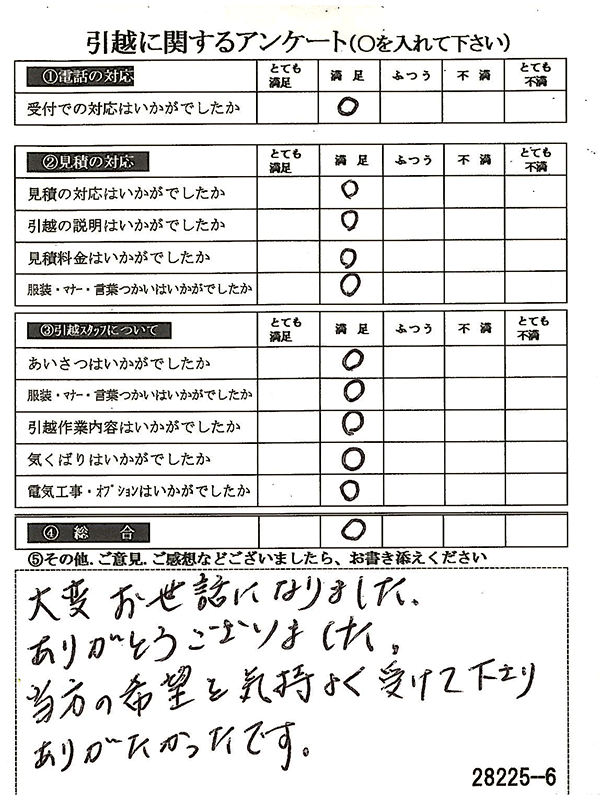 引越に関するアンケート(○を入れて下さい)
①電話の対応 とても満足 満足 ふつう 不満 とても不満
受付での対応はいかがでしたか ○
②見積の対応 とても満足 満足 ふつう 不満 とても不満
見積の対応はいかがでしたか ○
引越の説明はいかがでしたか ○
見積料金はいかがでしたか ○
服装・マナー・言葉つかいはいかがでしたか ○
③引越スタッフについて とても満足 満足 ふつう 不満 とても不満
あいさつはいかがでしたか ○
服装・マナー・言葉つかいはいかがでしたか ○
引越作業内容はいかがでしたか ○
気くばりはいかがでしたか ○
電気工事・オプションはいかがでしたか ○
④ 総 合 ○
⑤その他.ご意見.ご感想などございましたら、お書き添えください
大変お世話になりました、
ありがとうございました。
当方の希望を気持よく受けて下さり
ありがたかったです。
28225--6